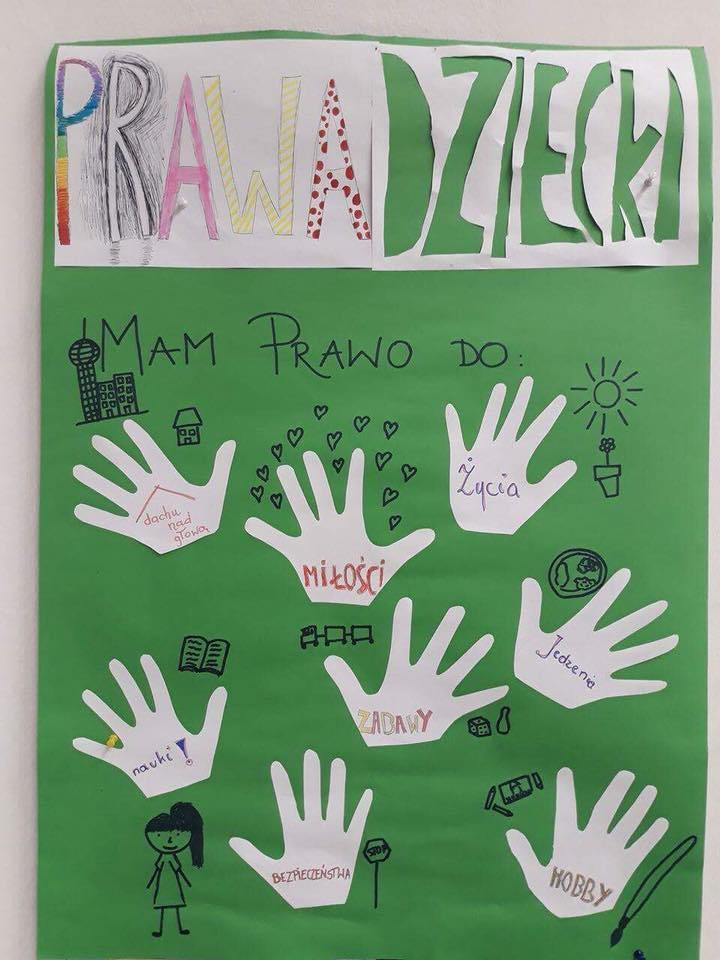 PRAWA DZIECKA
MAM PRAWO DO:
dachu
nad
głową
MIŁOŚCI
Życia
nauki!
ZABAWY
Jedzenia
BEZPIECZEŃSTWA
STOP
HOBBY